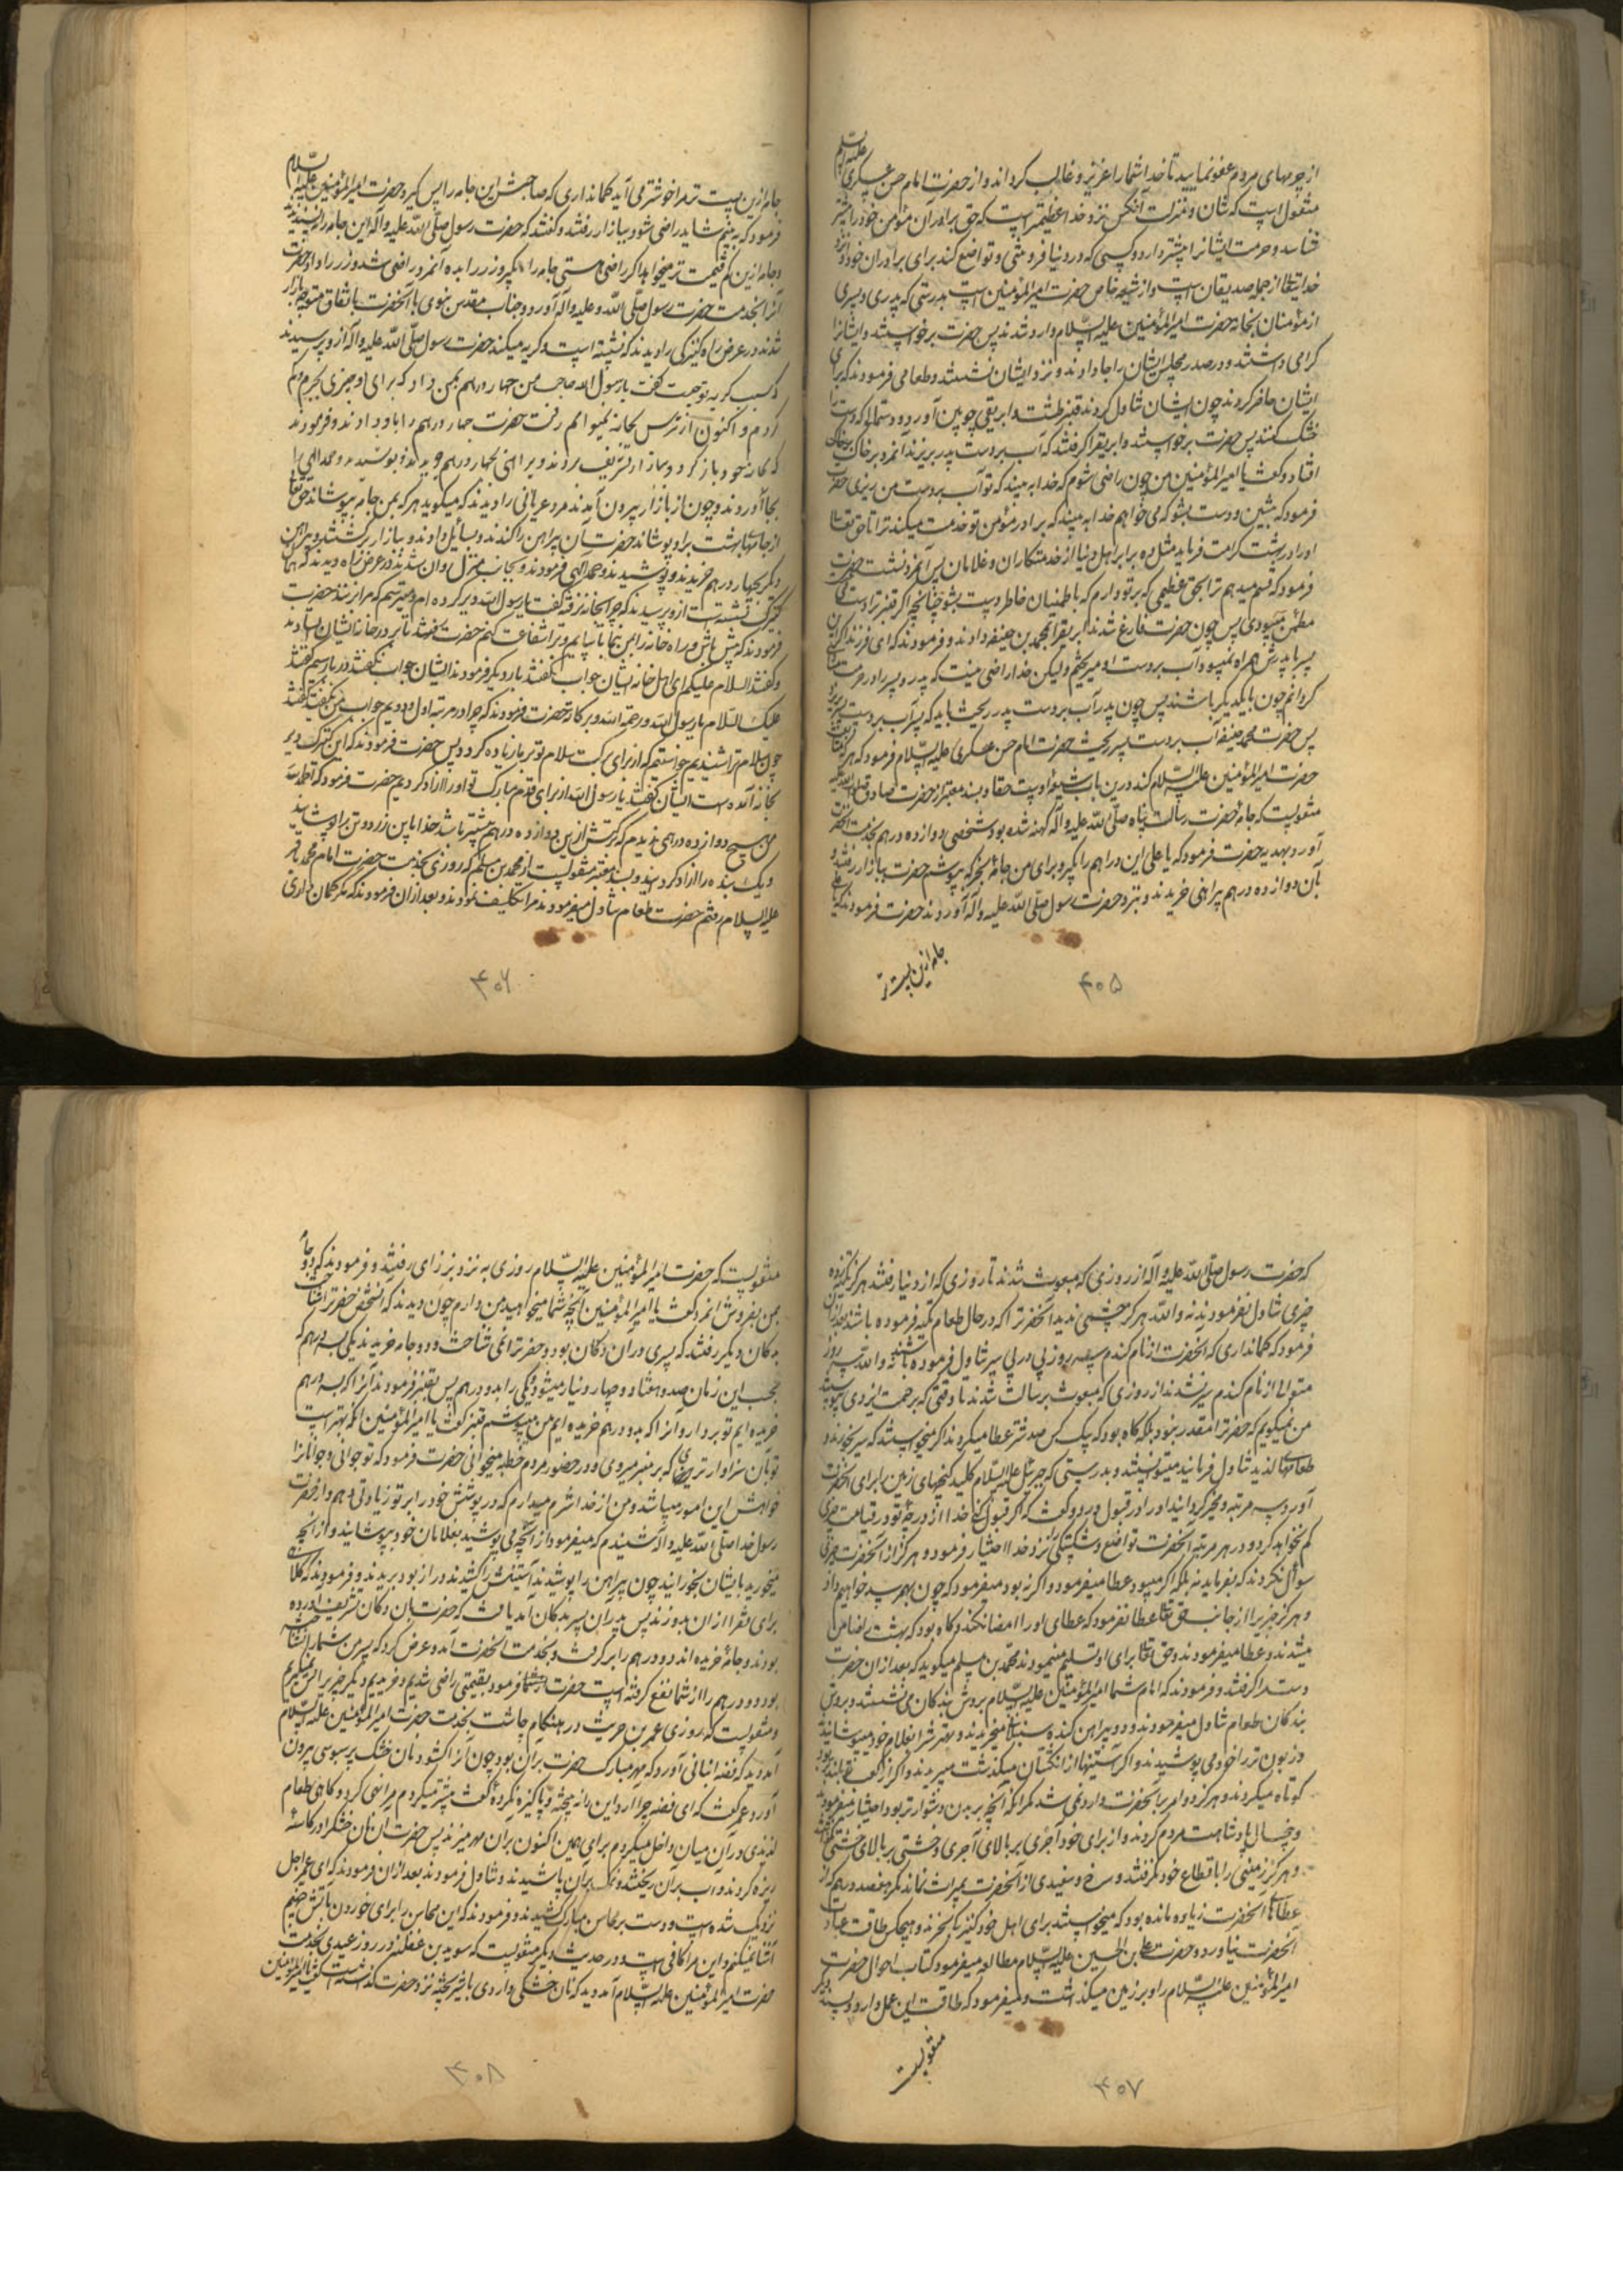 از جرمهای مردم عفو نمایید تا خدا شما را عزیز و غالب گرداند و از حضرت امام حسن عسکری علیه السلام
منقول است که شأن و منزلت آنکس نزد خدا عظیمتر است که حق برادران مؤمن خود را بیشتر
شناسد و حرمت ایشانرا بیشتر دارد و کسی که در دنیا فروتنی و تواضع کند برای برادران خود او نزد
خدایتعالی از جمله صدیقان است و از شیعه خاص حضرت امیر المؤمنین است بدرستی که پدری و پسری
از مؤمنان بخانه حضرت امیر المؤمنین علیه السلام وارد شدند پس حضرت برخواستند و ایشانرا
گرامی داشتند و در صدر مجلس ایشان را جا دادند و نزد ایشان نشستند و طعامی فرمودند که برای
ایشان حاضر کردند چون ایشان تناول کردند قنبر طشت و ابریقی چوبین آورد و دستمالی که دست را
خشک کنند پس حضرت برخواستند و ابریق را گرفتند که آب بر دست پدر بریزند آنمرد بر خاک
افتاد و گفت یا امیر المؤمنین من چون راضی شوم که خدا به بیند که تو آب بر دست من ریزی حضرت
فرمود که بنشین و دست بشو که می خواهم خدا به بیند که برادر مؤمن تو خدمت میکند ترا تا حق تعالی
او را در بهشت کرامت فرماید مثل ده برابر اهل دنیا از خدمتکاران و غلامان پس آنمرد نشست حضرت
فرمود که قسم میدهم ترا بحق عظیمی که بر تو دارم که با طمنیان خاطر دست بشو چنانچه اگر قنبر ترا دست
مطمئن میبودی پس چون حضرت فارغ شدند ابریق را بمحمد بن حنیفه دادند و فرمودند که ای فرزند اگر این
پسر با پدرش همراه نمیبود آب بر دست او میریختم ولیکن خدا راضی نیست که پدر و پسر را در حرمت
گردانم چون با یکدیگر باشند پس چون پدر آب بر دست پدر ریخت باید که پسر آب بر دست پسر
پس حضرت محمد حنیفه آب بر دست پسر ریخت حضرت امام حسن عسکری علیه السلام فرمود که هر که
حضرت امیر المؤمنین علیه السلام کند درین باب شیعه اوست حقا و بسند معتبر از حضرت صادق
منقولست که جامه حضرت رسالت پناه صلی الله علیه و آله کهنه شده بود شخصی دوازده درهم بخدمت آنحضرت
آورد بهدیه حضرت فرمود که یا علی این دراهم را بگیر و برای من جامه بخر که بپوشم حضرت ببازار رفتند و
بآن دوازده درهم پیراهنی خریدند و بنزد حضرت رسول صلی الله علیه و آله آوردند حضرت فرمودند که
جامه ازین پست تر
۴۰۵
جامه ازین پست تر مرا خوشتر می آید گمانداری که صاحبش این جامه را پس گیرد حضرت امیر المؤمنین علیه السلام
فرمود که به بینم شاید راضی شود ببازار رفتند و گفتند که حضرت رسول صلی الله علیه و آله این جامه را نپسندیدند
و جامه ازین کم قیمت تر میخواهد اگر راضی هستی جامه را بگیر و زر را بده آنمرد راضی شد و زر را داد و حضرت
آنرا بخدمت حضرت رسول صلی الله و علیه و آله آورد و جناب مقدس نبوی با آنحضرت باتفاق متوجه بازار
شدند در عرض راه کنیزکی را دیدند که نشسته است و گریه میکند حضرت رسول صلی الله علیه و آله از او پرسیدند
که سبب گریه تو چیست گفت یا رسول الله صاحب من چهار درهم بمن داد که برای او چیزی بخرم و گم
کردم و اکنون از ترس بخانه نمیتوانم رفت حضرت چهار درهم را باو دادند و فرمودند
که بخانه خود بازگرد و ببازار تشریف بردند و پیراهنی بچهار درهم خریدند و پوشیدند و حمد الهی
بجا آوردند و چون از بازار بیرون آمدند مرد عریانی را دیدند که میگوید هر که بمن جامه بپوشاند حق تعالی
از جامهای بهشت بر او پوشاند حضرت آن پیراهن را کندند و بسائل دادند و ببازار برگشتند و پیراهن
دیگر بچهار درهم خریدند و پوشیدند و حمد الهی فرمودند و بجانب منزل روان شدند در عرض راه دیدند که همان
کنیزک نشسته است از و پرسیدند که چرا بخانه نرفته گفت یا رسول الله دیر کرده ام و میترسم که مرا بزنند حضرت
فرمودند که پیش باش و راه خانه را بمن بنما تا بیایم و ترا شفاعت کنم حضرت رفتند تا بر در خانه ایشان ایستادند
و گفتند السلام علیکم ای اهل خانه ایشان جواب نگفتند بار دیگر فرمودند ایشان جواب نگفتند در بار سیم گفتند
علیک السلام یا رسول الله و رحمة الله و برکاته حضرت فرمودند که چرا در مرتبه اول و دویم جواب من نگفتید گفتند
چون سلام ترا شنیدیم خواستیم که از برای برکت سلام تو بر ما زیاده گردد پس حضرت فرمودند که این کنیزک دیر
بخانه آمده است ایشان گفتند یا رسول الله از برای قدم مبارک تو او را آزاد کردیم حضرت فرمود که الحمد لله
من هیچ دوازده درهمی ندیدم که برکتش ازین دوازده درهم بیشتر باشد خدا باین زر دو تن را پوشانید
و یک بنده را آزاد کردند و بسند معتبر منقولست از محمد بن مسلم که روزی بخدمت حضرت امام محمد باقر
علیه السلام رفتم حضرت طعام تناول میفرمودند مرا تکلیف نمودند و بعد از آن فرمودند که مگر گمان داری
۴۰۶
که حضرت رسول صلی الله علیه و آله از روزی که مبعوث شدند تا روزی که از دنیا رفتند هرگز تکیه کرده
چیزی تناول نفرمودند نه و الله هرگز چشمی ندید آنحضرت را که در حال طعام تکیه فرموده باشند بعد از آن
فرمود که گمانداری که آنحضرت از نان گندم سه روز پی در پی سیر تناول فرموده باشند نه و الله سه روز
متوالی از نان گندم سیر نشدند از روزی که مبعوث برسالت شدند تا وقتی که برحمت ایزدی پیوستند
من نمیگویم که حضرت را مقدور نبود بلکه گاه بود که بیک کس صد شتر عطا میکردند اگر میخواستند که سیر بخورند و
طعامهای لذیذ تناول فرمایند میتوانستند و بدرستی که جبرئیل علیه السلام کلید گنجهای زمین را برای آنحضرت
آورد سه مرتبه و مخیر گردانید او را در قبول و رد و گفت که اگر قبول کنی خدا از درجه تو در قیامت چیزی
کم نخواهد کرد و در هر مرتبه آنحضرت تواضع و شکستگی نزد خدا را اختیار فرمود و هرگز از آنحضرت چیزی
سؤال نکردند که بفرماید نه بلکه اگر میبود عطا میفرمود و اگر نبود میفرمود که چون بهم رسد خواهیم داد
و هرگز چیزی را از جانب حق تعالی عطا نفرمود که عطای او را امضا نکند و گاه بود که بهشت را ضامن
میشدند و عطا میفرمودند و حق تعالی برای او تسلیم مینمودند محمد بن مسلم میگوید که بعد از آن حضرت
دست مرا گرفتند و فرمودند که امام شما امیر المؤمنین علیه السلام بروش بندگان می نشستند و بروش
بندگان طعام تناول میفرمودند و دو پیراهن گنده سنبلانی میخریدند و بهترش را بغلام خود میپوشانید
و زبون تر را خود می پوشیدند و اگر آستینها از انگشتان میگذشت میبریدند و اگر از کعب بلندتر بود
کوتاه میکردند و هرگز دو امر بر آنحضرت وارد نمی شد مگر آنکه آنچه بر بدن دشوارتر بود اختیار میفرمودند
و پنج سال پادشاهت مردم کردند و از برای خود آجری بر بالای آجری و خشتی بر بالای خشتی نگذاشتند
و هرگز زمینی را با قطاع خود نگرفتند و سرخ و سفیدی از آنحضرت بمیراث نماند مگر هفتصد درهم که از
عطاهای آنحضرت زیاده مانده بود که میخواستند برای اهل خود کنیزی بخرند و هیچکس طاقت عبادت
آنحضرت نیاورد و حضرت علی بن الحسین علیه السلام مطالعه میفرمود کتاب احوال حضرت
امیر المؤمنین علیه السلام را و بر زمین میگذاشت و میفرمود که طاقت این عمل دارد و بسند دیگر
منقولست
۴۰۷
منقولست که حضرت امیر المؤمنین علیه السلام روزی به نزد بزازی رفتند و فرمودند که دو جامه
بمن بفروش آنمرد گفت یا امیر المؤمنین آنچه شما میخواهید من دارم چون دیدند که آنشخص حضرت را شناخت
بدکان دیگر رفتند که پسری در آن دکان بود و حضرت را نمی شناخت و دو جامه خریدند یکی بسه درهم که
بحسب این زمان صد و هفتاد و چهار دینار میشود و یکی را بدو درهم پس بقنبر فرمودند آنرا که بسه درهم
خریده ایم تو بردار و آنرا که بدو درهم خریده ایم من میپوشم قنبر گفت یا امیر المؤمنین آنکه بهتر است
تو بآن سزاوارتری که بر منبر میروی و در حضور مردم خطبه میخوانی حضرت فرمود که تو جوانی و جوانانرا
خواهش این امور میباشد و من از خدا شرم میدارم که در پوشش خود را بر تو زیادتی دهم و از حضرت
رسول خدا صلی الله علیه و آله شنیدم که میفرمود از آنچه می پوشید بغلامان خود بپوشانید و از آنچه
میخورید بایشان بخورانید چون پیراهن را پوشیدند آستینش را کشیدند دراز بود بریدند و فرمودند که کلاه
برای فقرا از آن بدوزند پس پدر آن پسر بدکان آمد یافت که حضرت بآن دکان تشریف آورده
بودند و جامه خریده اند دو درهم را برگرفت و بخدمت آنحضرت آمد و عرض کرد که پسر من شما را نشناخته
بود دو درهم را از شما نفع گرفته است حضرت فرمود بقیمتی راضی شدیم و خریدیم دیگر چیزی پس نمیگیریم
و منقولست که روزی عمر بن حریث در هنگام چاشت بخدمت حضرت امیر المؤمنین علیه السلام
آمد دید که فضه انبانی آورد که مهر مبارک حضرت بر آن بود چون آنرا گشود نان خشک پر سبوسی بیرون
آورد عمر گفت که ای فضه چرا آرد این را نه بیخته و پاکیزه نکرده گفت پیشتر میکردم مرا نهی کرد و گاهی طعام
لذیذی در آن میان داخل میکردم برای همین اکنون بر آن مهر میزند پس حضرت آن نان خشک را در کاسهٔ
ریزه کردند و آب بر آن ریختند و نمک بر آن پاشیدند و تناول فرمودند بعد از آن فرمودند که ای عمر اجل
نزدیک شده است و دست بر محاسن مبارک کشیدند و فرمودند که این محاسن را برای خوردن بآتش جهنم
آشنا نمیکنم و این مرا کافی است و در حدیث دیگر منقولست که سوید بن غفله در روز عیدی بخدمت
حضرت امیر المؤمنین علیه السلام آمد دید که نان خشکی دارد و با شیر پخته نزد حضرت گذاشته است گفت یا امیر المؤمنین
۴۰۸